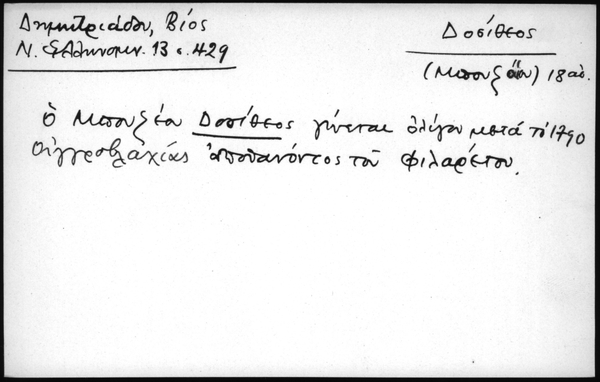 Δημητριάδου, Βίος
Ν. Ἑλληνομν. 13 σ. 429
Δοσίθεος
(Μπουζαίου) 18 αἰ.
ὁ Μπουζέου Δοσίθεος γίνεται ὀλίγον μετά τό 1790
Οὐγγροβλαχίας ἀποθανόντος τοῦ Φιλαρέτου.